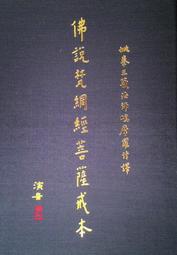 姚秦三藏法師鳩摩羅什譯
佛說梵網經菩薩戒本
演音